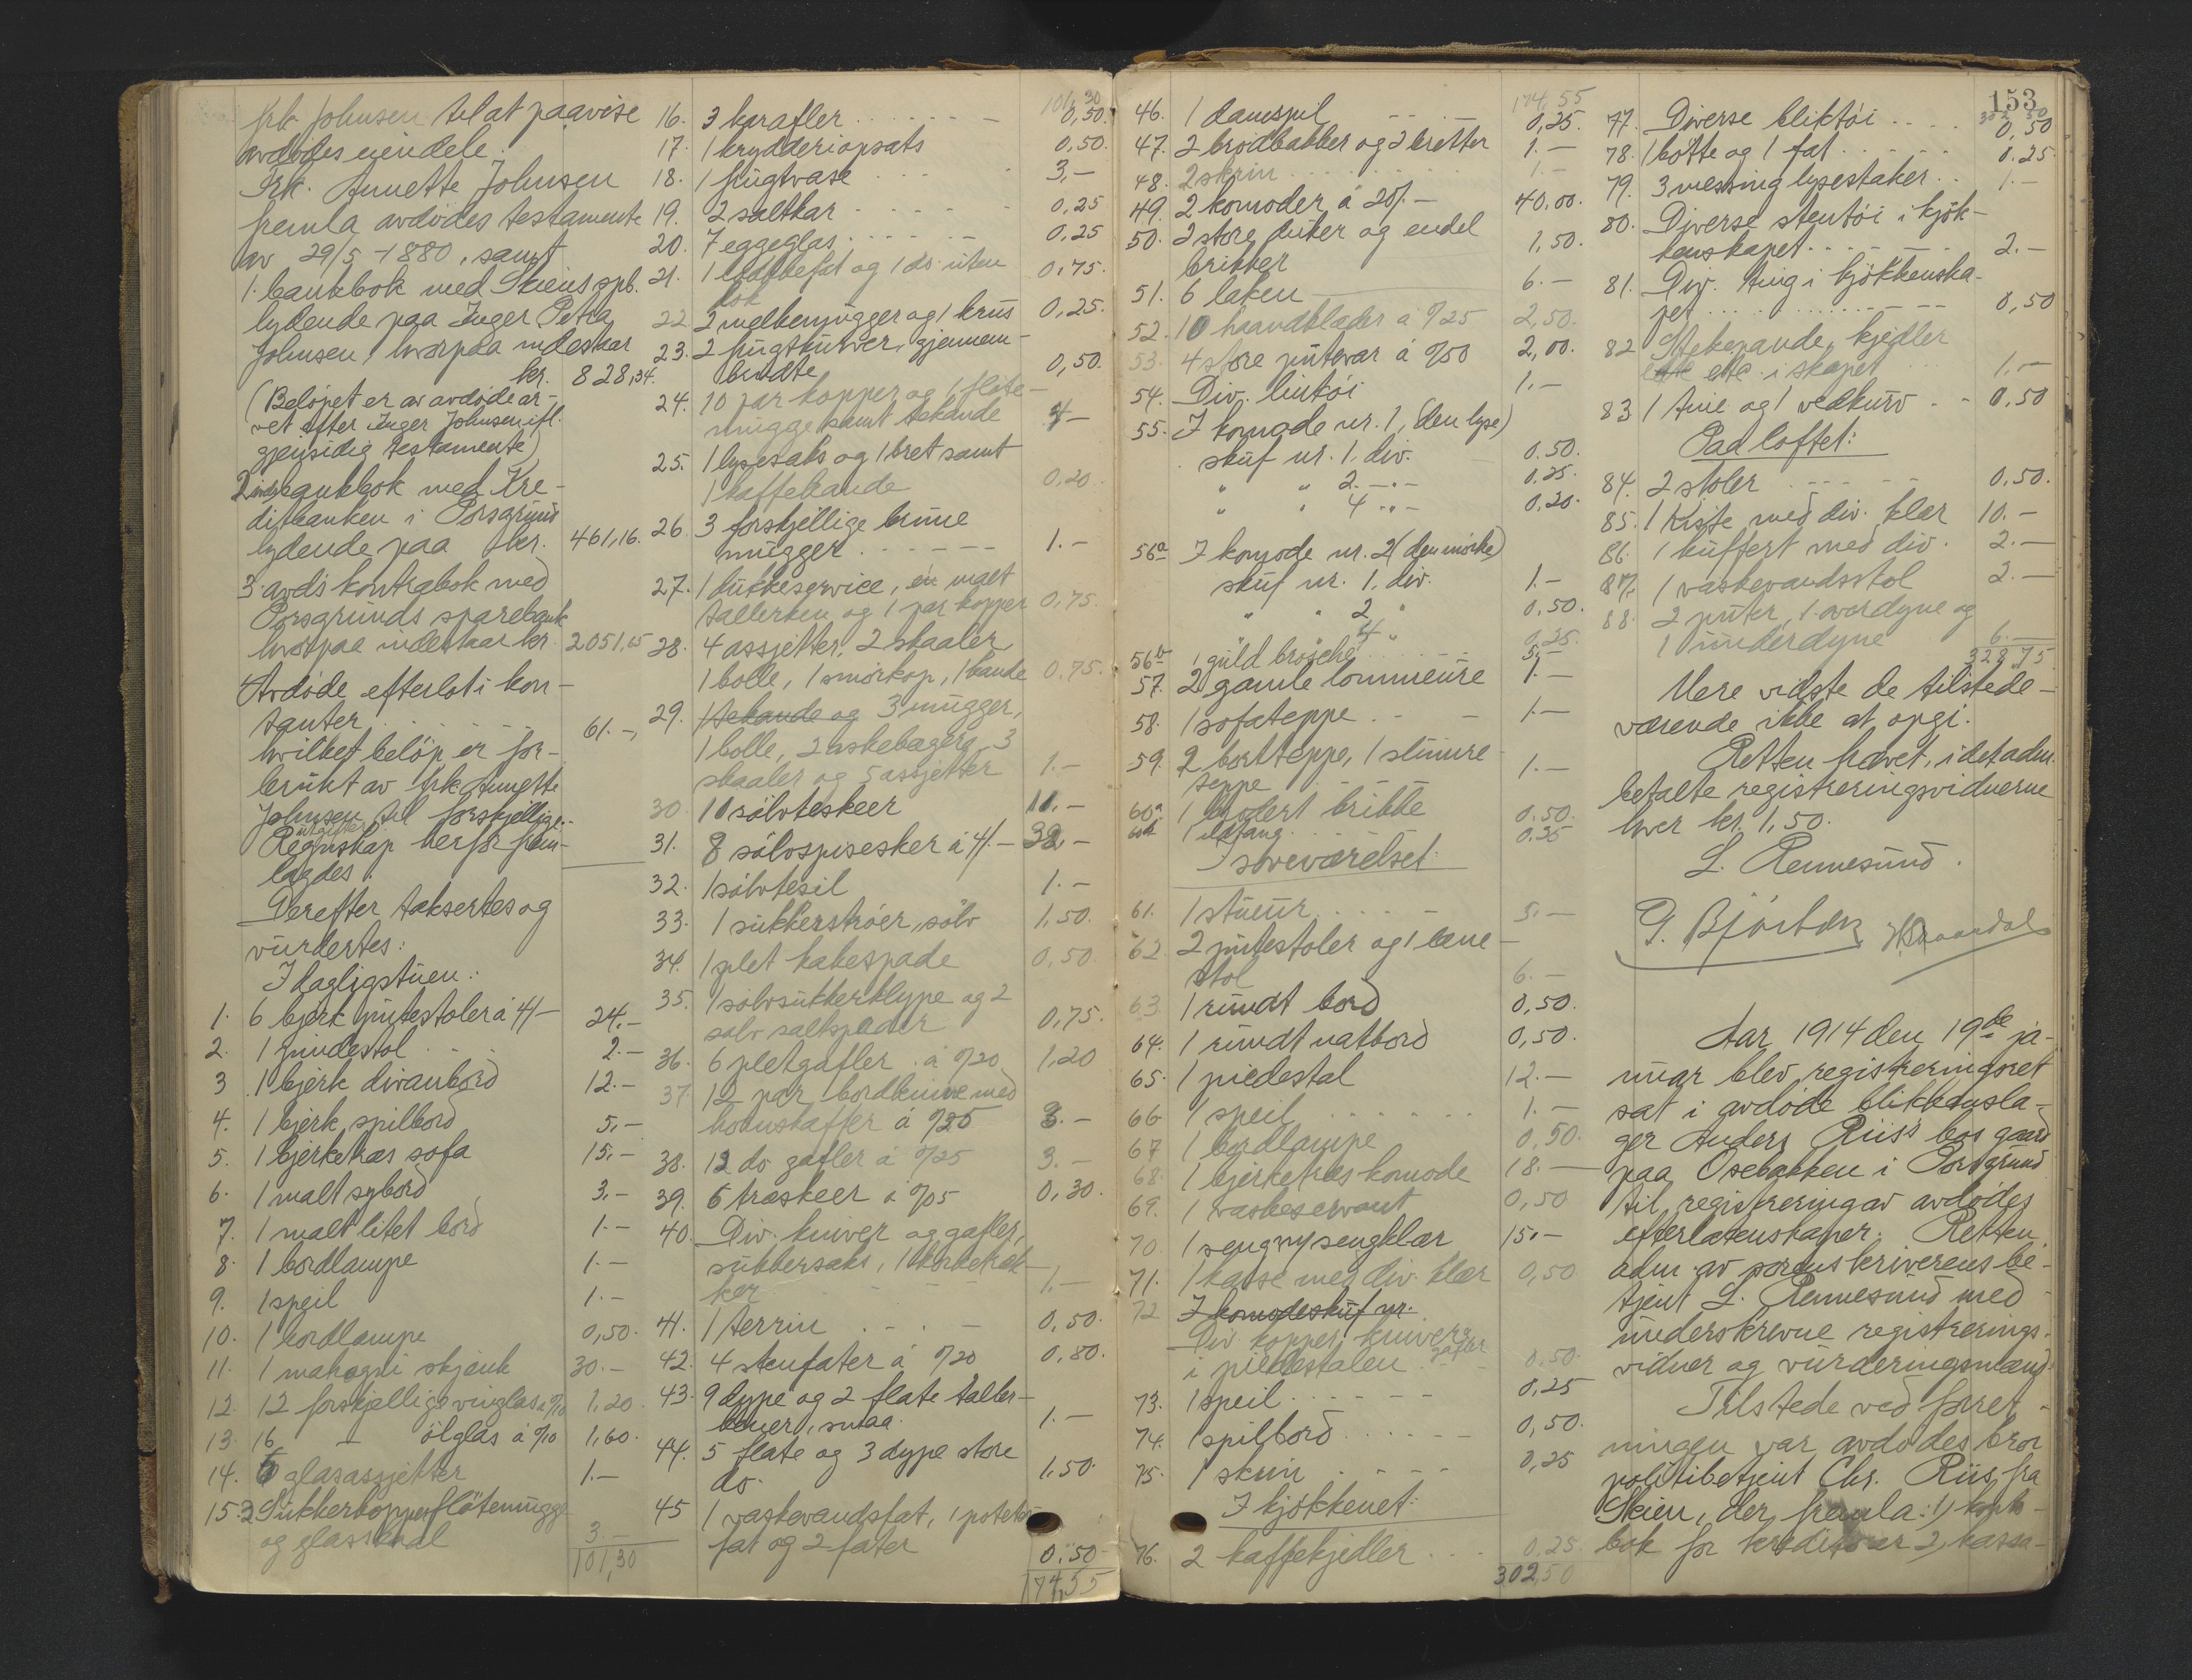 frk. Johnsen til at paavise
avdödes eiendele.
Frk. Annette Johnsen
fremla avdödes testamente
av 29/5 1880, samt
1. bankbok med Skiens spb.
lydende paa Inger Petra
Johnsen, hvorpaa indestaar
kr. 828,34.
(Belöpet er av avdöde ar-
vet efter Inger Johnsen ifl.
gjensidig testamente)
2 bankbok med Kre-
ditbanken i Porsgrund
lydende paa kr. 461,16.
3. avd's kontrabok med
Porsgrunds sparebank
hvorpaa indestaar kr. 2051,65
Avdöde efterlot i kon-
tanter 61.-,
hvilket belöp er for-
brukt av frk. Annette
Johnsen til forskjellige
utgifter
Regnskap herfor frem-
lagdes.
Derefter taksertes og
vurdertes:
I dagligstuen:
1. 6 bjerk putestoler á 4/- 24.-
2. 1 pindestol 2.-
3 1 bjerk divanbord 12.-
4. 1 bjerk spilbord 5,-
5. 1 bjerketræs sofa 15,-
6. 1 malt sybord 3,-
7. 1 malt litet bord 1.-
8. 1 bordlampe 1.-
9. 1 speil 1.-
10. 1 bordlampe 0,50.
11. 1 mahogni skjænk 30.-
12. 12 forskjellige vinglas á 0/10 1,20.
13. 16 - ölglas á 0/10 1,60.
14. 6 glasassjetter 1.-
15. 2 Sukkerkopper flötemugge
og glasskaal 3.-
101,30
101,30
16. 3 karafler 0,50.
17. 1 krydderiopsats 0,50.
18. 1 frugtvase 3,-
19. 2 saltkar 0,25
20. 7 eggeglas 0,25
21. 1 fat og 1 do. uten
lok 0,75.
22 2 melkemugger og 1 krus 0,25.
23. 2 frugtkurver, gjennem-
brudte 0,50.
24. 10 par kopper og 1 flöte-
mugge samt tekande 4-
25. 1 lysesaks og 1 bret samt
1 kaffekande 0,20.
26. 3 forskjellige brune
mugger 1.-
27. 1 dukkeservice, én malt
tallerken og 1 par kopper 0,75.
28. 4 assjetter, 2 skaaler
1 bolle, 1 smörkop, 1 kande 0,75.
29. 1 tekande og 3 mugger,
1 bolle, 2 askebægere, 3
skaaler og 5 assjetter 1.-
30. 10 sölvteskeer 10.-
31. 8 sölvspiseskeer á 4/- 32,-
32. 1 sölvtesil 1.-
33. 1 sukkerströer, sölv 1,50.
34. 1 plet kakespade 0,50.
35. 1 sölvsukkerklype og 2
sölv saltspader 0,75.
36. 6 pletgafler á 0/20 1,20
37. 12 par bordknive med
hornskafter á 0/25 3.-
38. 12 do gafler á 0/25 3.-
39. 6 træskeer á 0/05 0,30.
40. Div. kniver og gafler,
sukkersaks, 1 korketræk-
ker 1.-
41. 1 terrin 0,50.
42. 4 stenfater á 0/20 0,80.
43. 9 dype og 2 flate taller-
kener, smaa 1.-
44. 5 flate og 3 dype store
do. 1,50.
45 1 vaskevandsfat, 1 potet-
fat og 2 fater 0,50
174,55
174,55
46. 1 damspil 0,25.
47. 2 brödbakker og 2 bretter 1.-
48. 2 skrin 1.-
49. 2 komoder á 20/- 40,00.
50. 2 store duker og endel
brikker 1,50.
51. 6 laken 6.-
52. 10 haandklæder á 0/25 2,50.
53. 4 store putevar á 0/50 2,00.
54. Div. lintöi 1.-
55. I komode nr. 1, (den lyse)
skuf nr. 1. div. 0.50.
" " 2. -"- 0,25.
" " 4 -"- 0,20.
56a I komode nr. 2 (den mörke)
skuf nr. 1. div. 1.-
" " 2 " 0,50.
" " 4 " 0,25.
56b 1 guld brosche 5,-
57. 2 gamle lommeure 1.-
58. 1 sofateppe 1.-
59. 2 bordteppe, 1 
teppe 1.-
60a 1 brodert brikke 0.50.
60b 1 ildtang 0.25
I soveværelset:
61. 1 stueur 5.-
62. 2 putestoler og 1 læne-
stol 6.-
63 1 rundt bord 0,50.
64. 1 rundt natbord 0,50.
65. 1 piedestal 12.-
66 1 speil 1.-
67 1 bordlampe 0,50.
68. 1 bjerketræs komode 18.-
69. 1 vaskeservant 0,50
70. 1 seng m/ sengklær 15.-
71. 1 kasse med div. klær 0,50
72 I komodeskuf nr.
Div kopper, kniver &
gafler
i piedestalen 0,50.
73. 1 speil 0,25
74. 1 spilbord 0,50.
75. 1 skrin 0,25
I kjökkenet:
76. 2 kaffekjedler 0,25.
302,50
153
302,50
77. Diverse bliktöi 0,50
78. 1 bötte og 1 fat 0.25
79. 3 messing lysestaker 1.-
80. Diverse stentöi i kjök-
kenskapet 2.-
81. Div. ting i kjökkenska-
pet 0,50
82 Stekepande, kjedler
etc. i skapet 1,-
83 1 tine og 1 vedkurv 0,50
Paa loftet:
84. 2 stoler 0,50.
85. 1 kiste med div. klær 10.-
86. 1 kuffert med div. 2.-
87. 1 vaskevandsstol 2.-
88. 2 puter, 1 overdyne og
1 underdyne 6.-
328,75
Mere vidste de tilstede-
værende ikke at opgi.
Retten hævet, idet adm.
betalte registreringsvidnerne
hver kr. 1,50.
L. Rennesund.
Aar 1914 den 19de ja-
nuar blev registreringsret
sat i avdöde blikkensla-
ger Anders Riis's bos gaard
paa Osebakken i Porsgrund
til registrering av avdödes
efterlatenskaper. Retten
adm. av sorenskriverens be-
tjent L. Rennesund med
underskrevne registrerings-
vidner og vurderingsmænd:
Tilstede ved forret-
ningen var avdödes bror
politibetjent Chr. Riis fra
Skien, der fremla: 1)
bok for kreditorer 2) kassa-